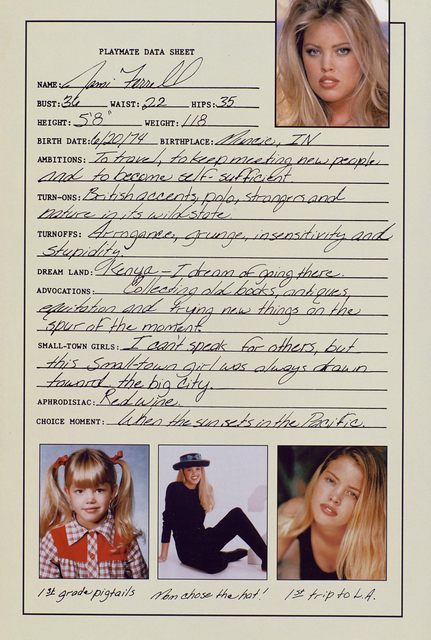 PLAYMATE DATA SHEET
NAME: Jami Ferrell
BUST: 36 WAIST: 22 HIPS: 35
HEIGHT: 5'8" WEIGHT: 118
BIRTH DATE: 6/20/74 BIRTHPLACE: Muncie, IN
AMBITIONS: To travel, to keep meeting new people
and to become self-sufficient
TURN-ONS: British accents, polo, strangers and
nature in its wild state.
TURNOFFS: Arrogance, grunge, insensitivity and
stupidity.
DREAM LAND: Kenya – I dream of going there.
ADVOCATIONS: Collecting old books, antiques,
equitation and trying new things on the
spur of the moment.
SMALL-TOWN GIRLS: I can't speak for others, but
this small-town girl was always drawn
toward the big city.
APHRODISIAC: Red wine.
CHOICE MOMENT: When the sun sets in the Pacific.
1st grade pigtails
Mom chose the hat!
1st trip to L.A.